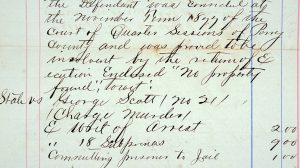 the Defendant was Convicted at
the November Term 1899 of the
Court of Quarter Sessions of Perry
County and was proved to be
insolvent by the return of E
xecution Endorsed "No property
found", Court
State vs George Scott (No 21)
(Charge Murder)
E Writ of Arrest 2.00
" 18 Subpoenas 9.00
Committing Prisoner to Jail 1.00